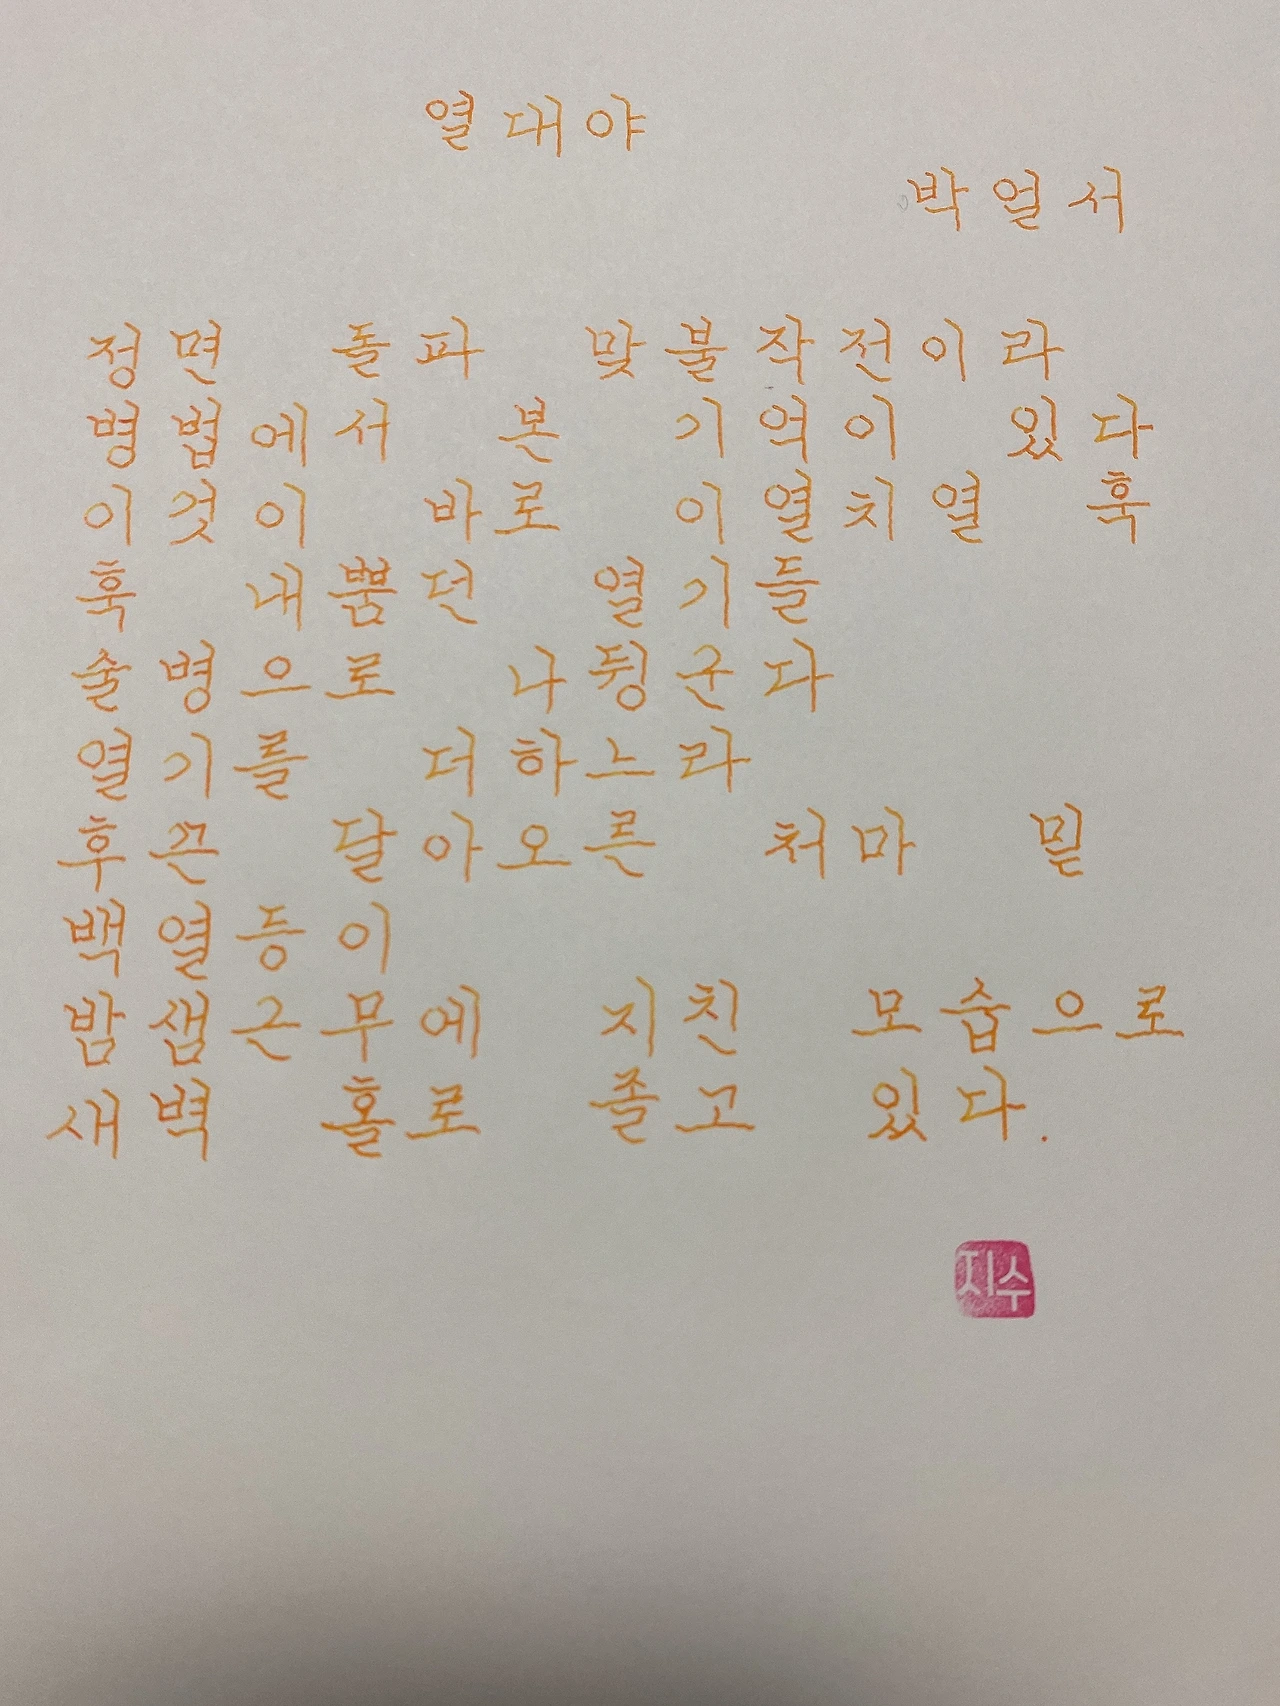 열대야
박열서
정면 돌파 맞불작전이라
병법에서 본 기억이 있다
이것이 바로 이열치열 훅
훅 내뿜던 열기들
술병으로 나뒹군다
열기를 더하느라
후끈 달아오른 처마 밑
백열등이
밤샘근무에 지친 모습으로
새벽 홀로 졸고 있다.
지수